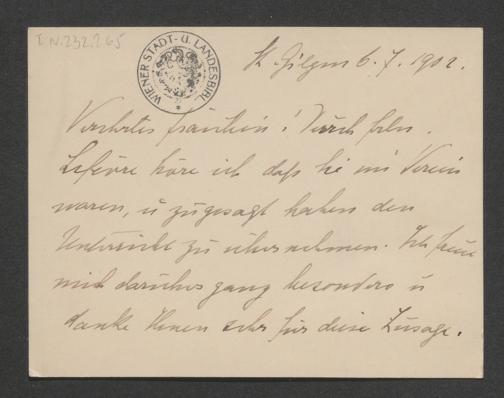 I.N.232.265
WIENER STADT- U. LANDESBIBL.
St. Gilgen 6. 7. 1902.
Verehrtes Fräulein! Durch Frln.
Lefèvre höre ich daß Sie im Verein
waren, u zugesagt haben den
Unterricht zu übernehmen. Ich freue
mich darüber ganz besonders u
danke Ihnen sehr für diese Zusage.